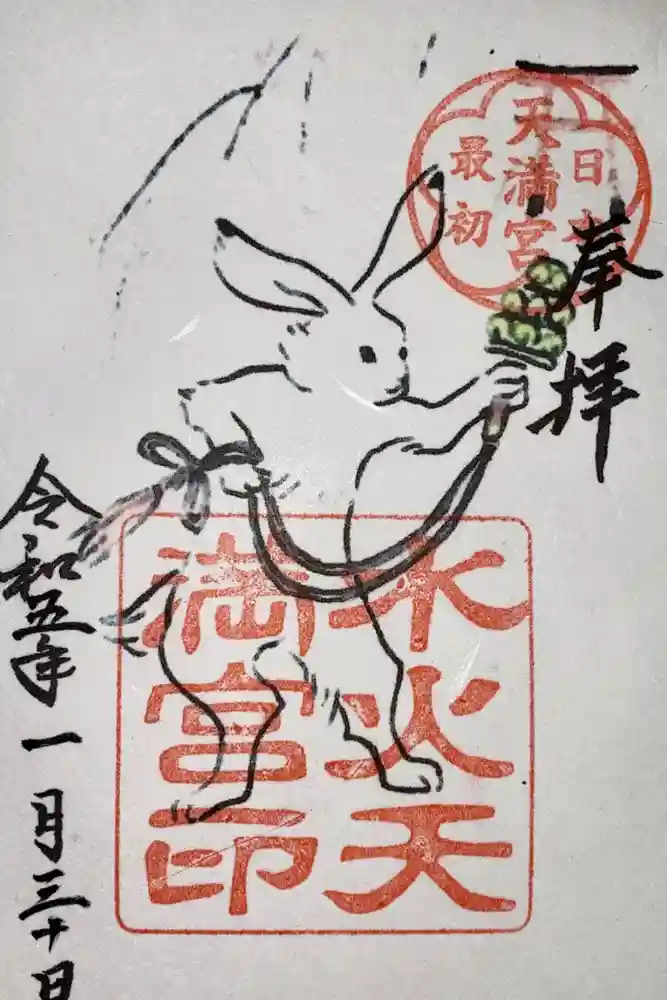 奉拝
日本
天満宮
最初
水火天
満宮印
令和五年一月三十日